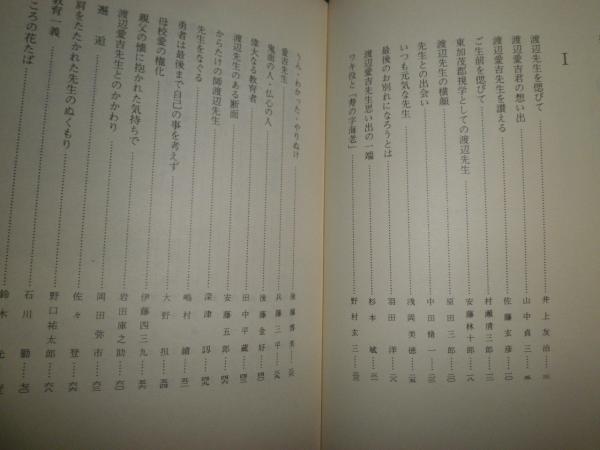 I
渡辺先生を偲びて……井上友治……三
渡辺愛吉君の想い出……山中貞三……
渡辺愛吉先生を讃える……佐藤玄彦……一〇
ご生前を偲びて……村瀬清三郎……三
東加茂郡視学としての渡辺先生……安藤林十郎……
渡辺先生の横顔……原田三郎……
先生との出会い……中田脩一……
いつも元気な先生……浅岡美徳……二五
最後のお別れになろうとは……羽田洋……二八
渡辺愛吉先生思い出の一端……杉本斌……
ワキ役と「寿の字海老」……野村玄三……
うん・わかった・やりぬけ……後藤博美……
愛吉先生……兵藤三平……
鬼面の人・仏心の人……後藤金好……四〇
偉大なる教育者……田中平蔵……
渡辺先生のある断面……安藤五郎……四六
からたけの師渡辺先生……深津訒……四九
先生をなぐる……嶋村績……五二
勇者は最後まで自己の事を考えず……大野担……
母校愛の権化……伊藤四三九……五六
親父の懐に抱かれた気持ちで……岩田庫之助……六〇
渡辺愛吉先生とのかかわり……岡田弥市……
邂逅……佐々登……六六
肩をたたかれた先生のぬくもり……野口祐太郎……六八
教育一義……石川勤……七〇
ころの花たば……鈴木